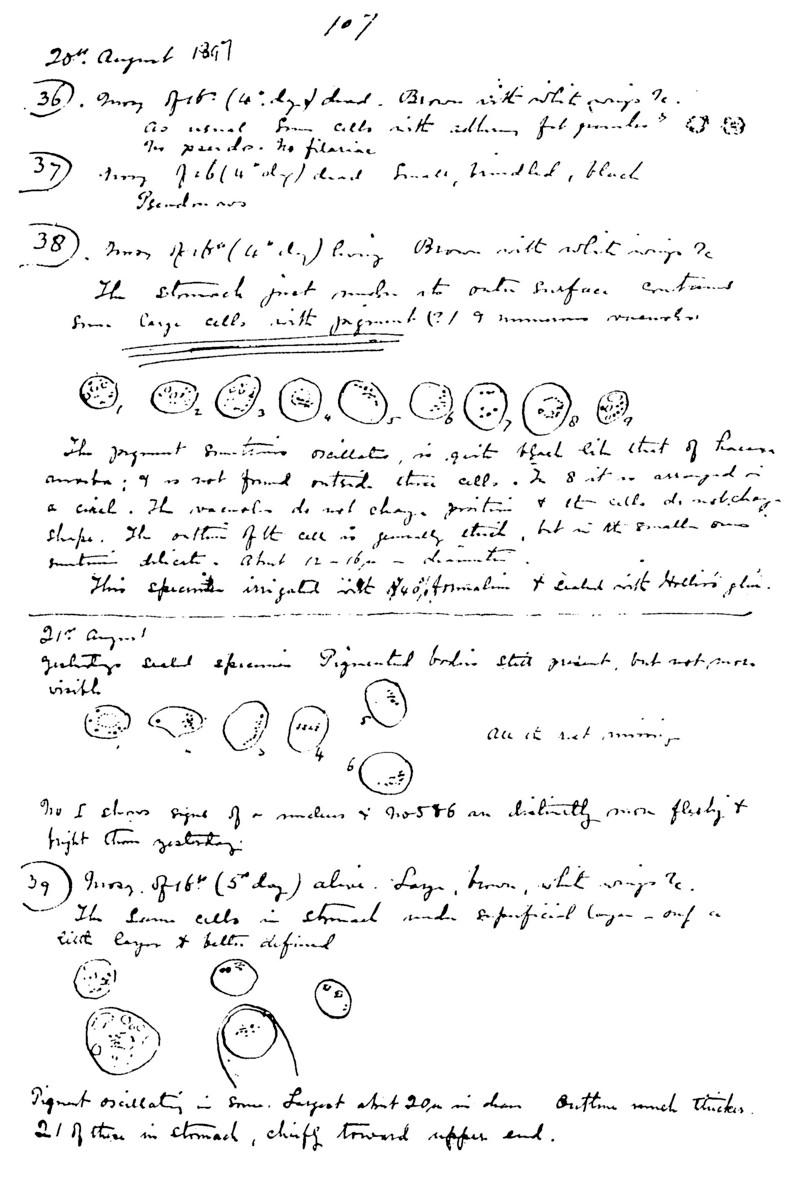 107
20th August 1897
36. Mosq of 16th (4th day) dead. Brown with white wings &c.
As usual some cells with adhering fat granules?
No pseudo. No filariae
37 Mosq of 16 (4th day) dead Small, brindled, black
Pseudo nos
38. Mosq of 16th (4th day) living Brown with white wings &c
The stomach just under its outer surface contains
some large cells with pigment (?) & numerous vacuoles
1 2 3 4 5 6 7 8 9
The pigment sometimes oscillates, is quite black like that of haem
amoeba; & is not found outside these cells. In 8 it is arranged in
a circle. The vacuoles do not change position & the cells do not change
shape. The outline of the cell is generally thick, but in the smaller ones
sometimes delicate. About 12 - 16µ in diameter.
This specimen irrigated with 40% formaline & sealed with Hollis's glue.
21st August
Yesterdays sealed specimen Pigmented bodies still present, but not more
visible
1 2 3 4 5 6
All the rest missing
No 1 shows signs of a nucleus & No 5 & 6 are distinctly more fleshy &
bright than yesterday.
39 Mosq. of 16th (5th day) alive. Large, brown, white wings &c.
The same cells in stomach under superficial layer - only a
little larger & better defined
Pigment oscillating in some. Largest about 20µ in diam Outline much thicker.
21 of these in stomach, chiefly toward upper end.